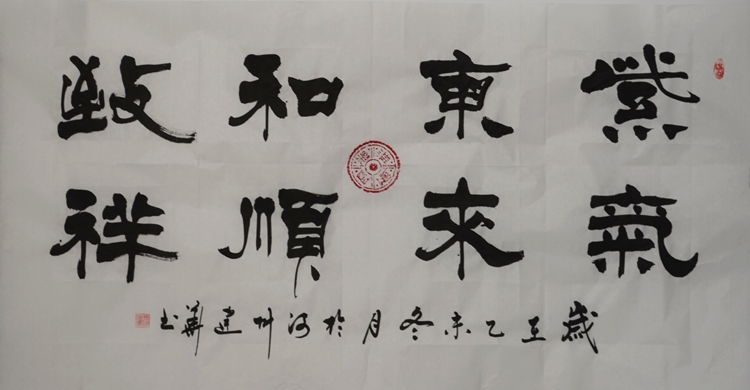 紫氣
東來
和順
致祥
歲在乙未冬月於河州建華书